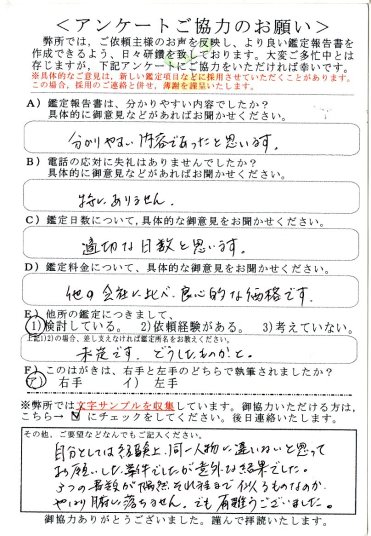 ＜アンケートご協力のお願い＞
弊所では、ご依頼主様のお声を反映し、より良い鑑定報告書を
作成できるよう、日々研鑽を致しております。大変ご多忙中とは
存じますが、下記アンケートにご協力をいただければ幸いです。
※具体的なご意見は、新しい鑑定項目などに採用させていただくことがあります。
この場合、採用のご連絡と併せ、薄謝を謹呈いたします。
A）鑑定報告書は、分かりやすい内容でしたか？
具体的に御意見などがあればお聞かせください。
分かりやすい内容であったと思います。
B）電話の応対に失礼はありませんでしたか？
具体的に御意見などがあればお聞かせください。
特にありません。
C）鑑定日数について、具体的な御意見をお聞かせください。
適切な日数と思います。
D）鑑定料金について、具体的な御意見をお聞かせください。
他の会社に比べ、良心的な価格です。
E）他所の鑑定につきまして、
1)検討している。 2)依頼経験がある。 3)考えていない。
上記1)2)の場合、差し支えなければ鑑定所名をお教えください。
未定です。どうしたものかと。
F）このはがきは、右手と左手のどちらで執筆されましたか？
ア） 右手 イ） 左手
※弊所では文字サンプルを収集しています。御協力いただける方は、
こちら→☑にチェックをしてください。後日連絡いたします。
その他、ご要望などなんでもご記入ください。
自分としては経験上、同一人物に違いないと思って
お願いした案件でしたが意外な結果でした。
3つの書類が偶然それ程まで似るものなのか、
やはり腑に落ちません。でも有難うございました。
御協力ありがとうございました。謹んで拝読いたします。